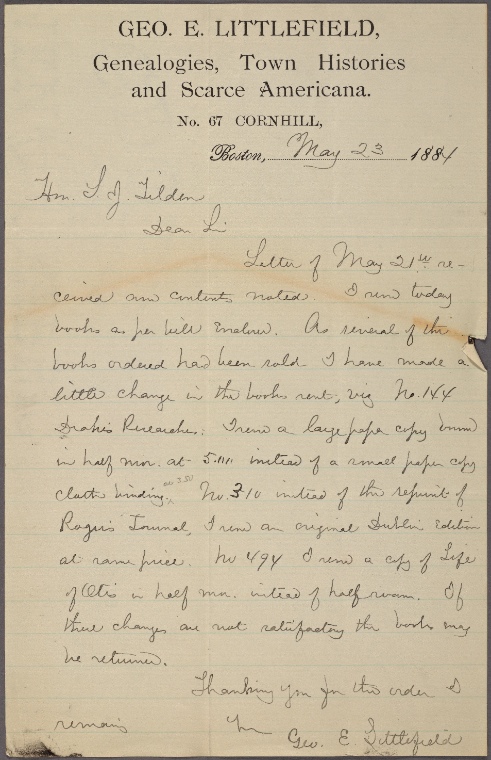 GEO. E. LITTLEFIELD,
Genealogies, Town Histories
and Scarce Americana.
No. 67 CORNHILL,
Boston, May 23 1884
Hon. S. J. Tilden
Dear Sir
Letter of May 21st re-
ceived and contents noted. I send today
books as per bill enclosed. As several of the
books ordered had been sold I have made a
little change in the books sent, viz No. 144
Drake's Researches. I send a large paper copy bound
in half mor. at 5.00 instead of a small paper copy
cloth binding at 3.50 No. 310 instead of the reprint of
Rogers Journal, I send an original Dublin Edition
at same price. No 494 I send a copy of Life
of Otis in half mor. instead of half roan. If
these changes are not satisfactory the books may
be returned.
Thanking you for the order I
remain
Geo. E. Littlefield